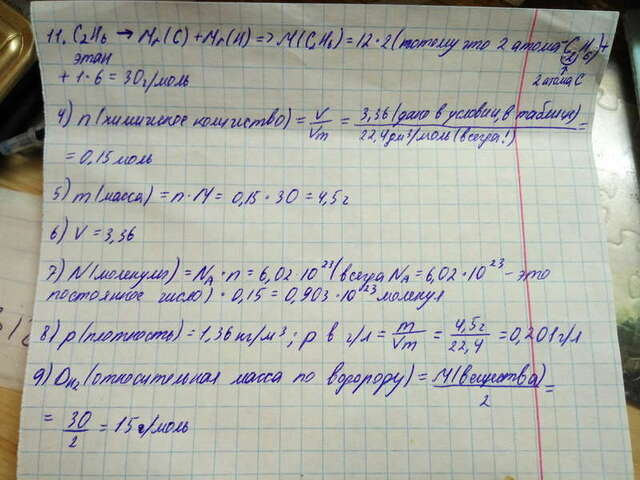 11. C₂H₆ → Mr(C) + Mr(H) => M(C₂H₆) = 12·2 (потому что 2 атома C₂H₆) +
этан
2 атома C
+ 1·6 = 30 г/моль
4) n (химическое количество) = V/Vm = 3,36 (дано в условии, в таблице)/22,4 дм³/моль (всегда!) =
= 0,15 моль
5) m (масса) = n·M = 0,15·30 = 4,5 г
6) V = 3,36
7) N (молекулы) = NA·n = 6,02·10²³ (всегда NA = 6,02·10²³ - это
постоянное число) · 0,15 = 0,903·10²³ молекул
8) ρ (плотность) = 1,36 кг/м³; ρ в г/л = m/Vm = 4,5г/22,4 = 0,201 г/л
9) DH₂ (относительная масса по водороду) = M(вещества)/2 =
= 30/2 = 15 г/моль